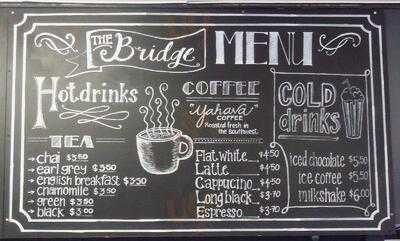 THE Bridge MENU
Hot drinks
TEA
chai $3.50
earl grey $3.50
english breakfast $3.50
chamomile $3.50
green $3.50
black $3.00
COFFEE
"Yahava"
COFFEE
Roasted fresh in
the Southwest.
Flat white $4.50
Latte $4.50
Cappucino $4.50
Long black $3.70
Espresso $3.70
COLD
drinks
iced chocolate $5.50
ice coffee $5.50
milkshake $6.00